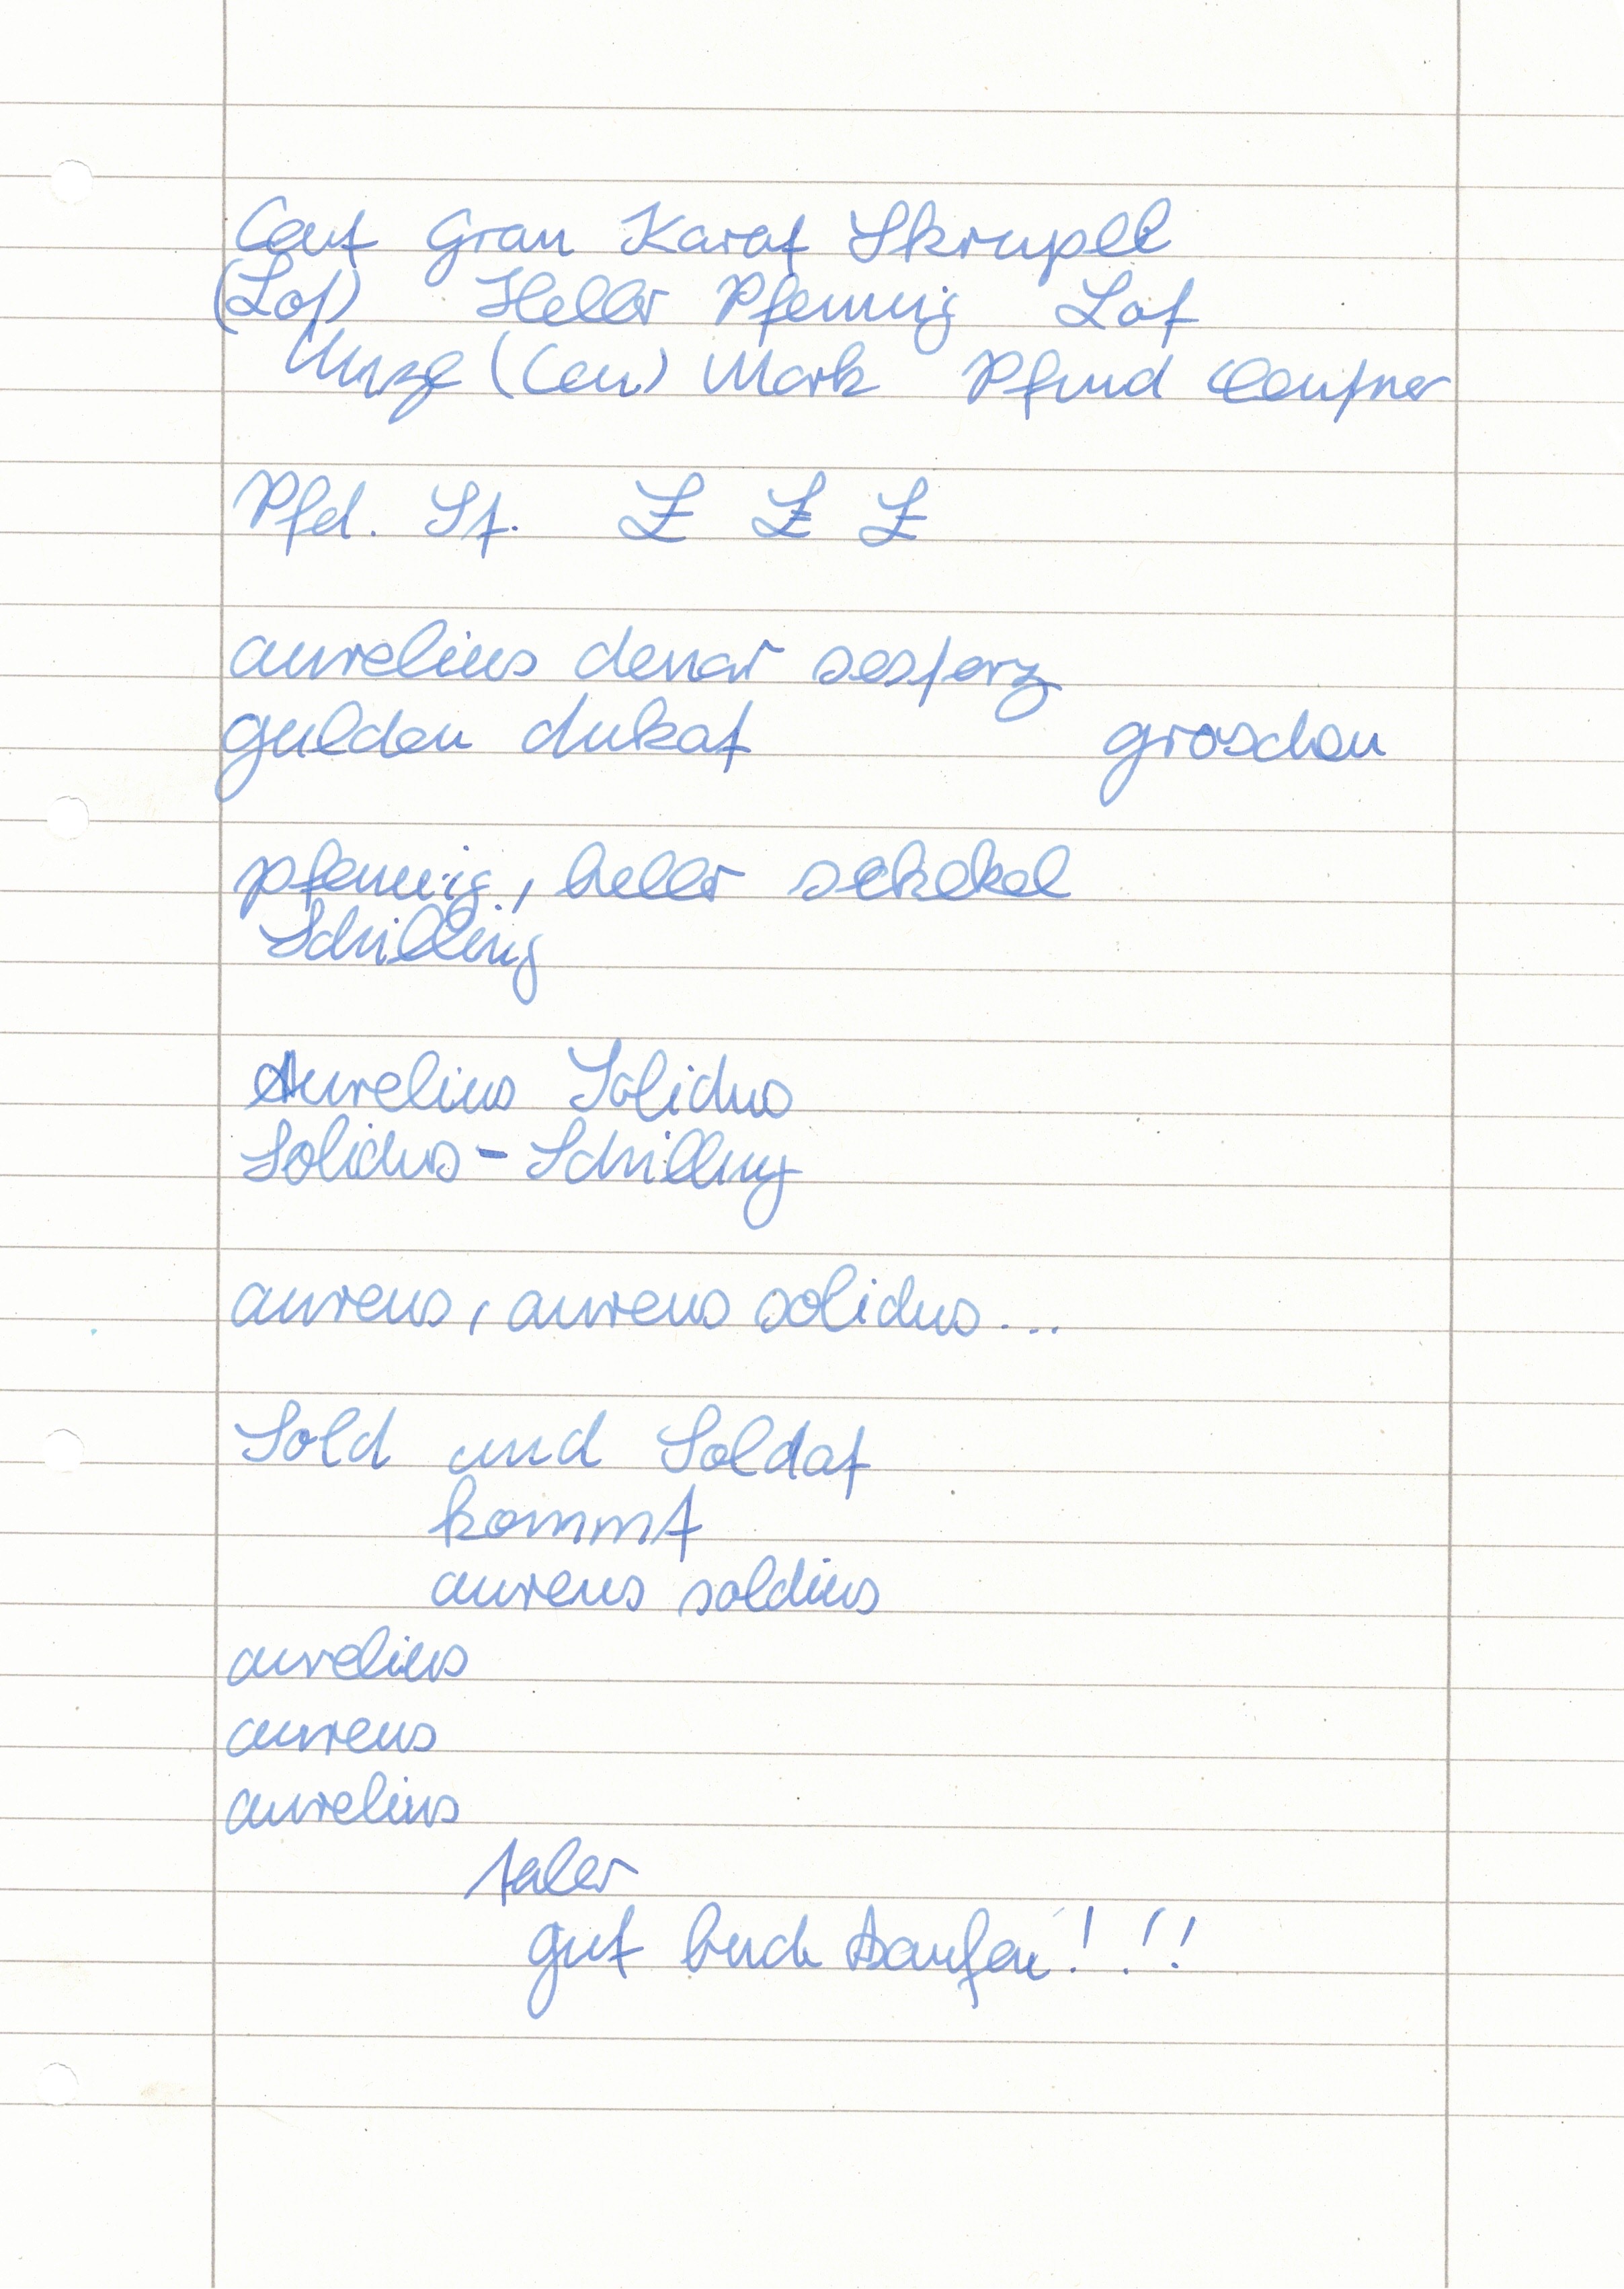 Cent Gran Karat Skrupel
(Lot) Heller Pfennig Lot
Unze (Cen) Mark Pfund Centner
Pfd. St. £ £ £
aurelius denar sesterz
gulden dukat groschen
pfennig, heller schekel
Schilling
Aurelius Solidus
Solidus - Schilling
aureus, aureus solidus...
Sold und Soldat
kommt
aureus soldius
aurelius
aureus
aurelius
taler
gut buch !!!